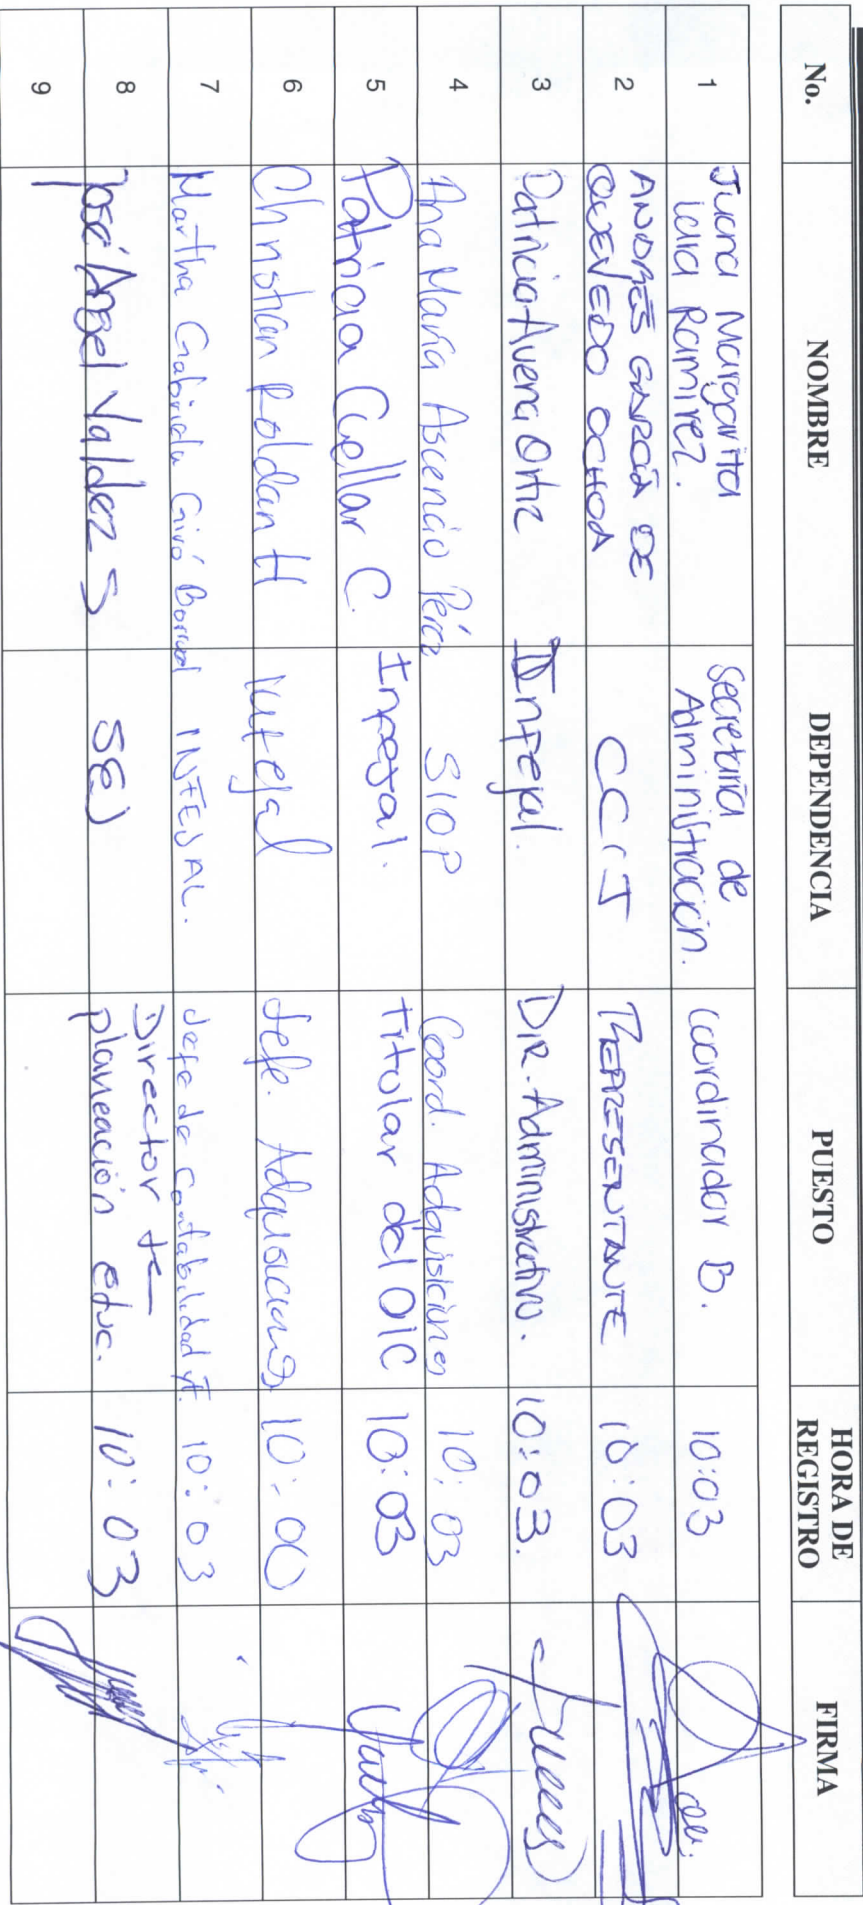 No. NOMBRE DEPENDENCIA PUESTO HORA DE REGISTRO FIRMA
1 Juana Margarita Lara Ramirez. Secretaría de Administración. Coordinador B. 10:03
2 ANDRÉS GARCÍA DE QUEVEDO OCHOA CCIJ REPRESENTANTE 10:03
3 Patricia Avena Ortiz Infejal. DIR. Administrativo. 10:03.
4 Ana María Ascencio Pérez SIOP Coord. Adquisiciones 10:03
5 Patricia Cuellar C. Infejal. Titular del OIC 10:03
6 Christian Roldan H Infejal Jefe. Adquisiciones 10:00
7 Martha Gabriela Giró INFEJAL. Jefe de Contabilidad 10:03
8 José Angel Valdez S SEJ Director de planeación educ. 10:03
9